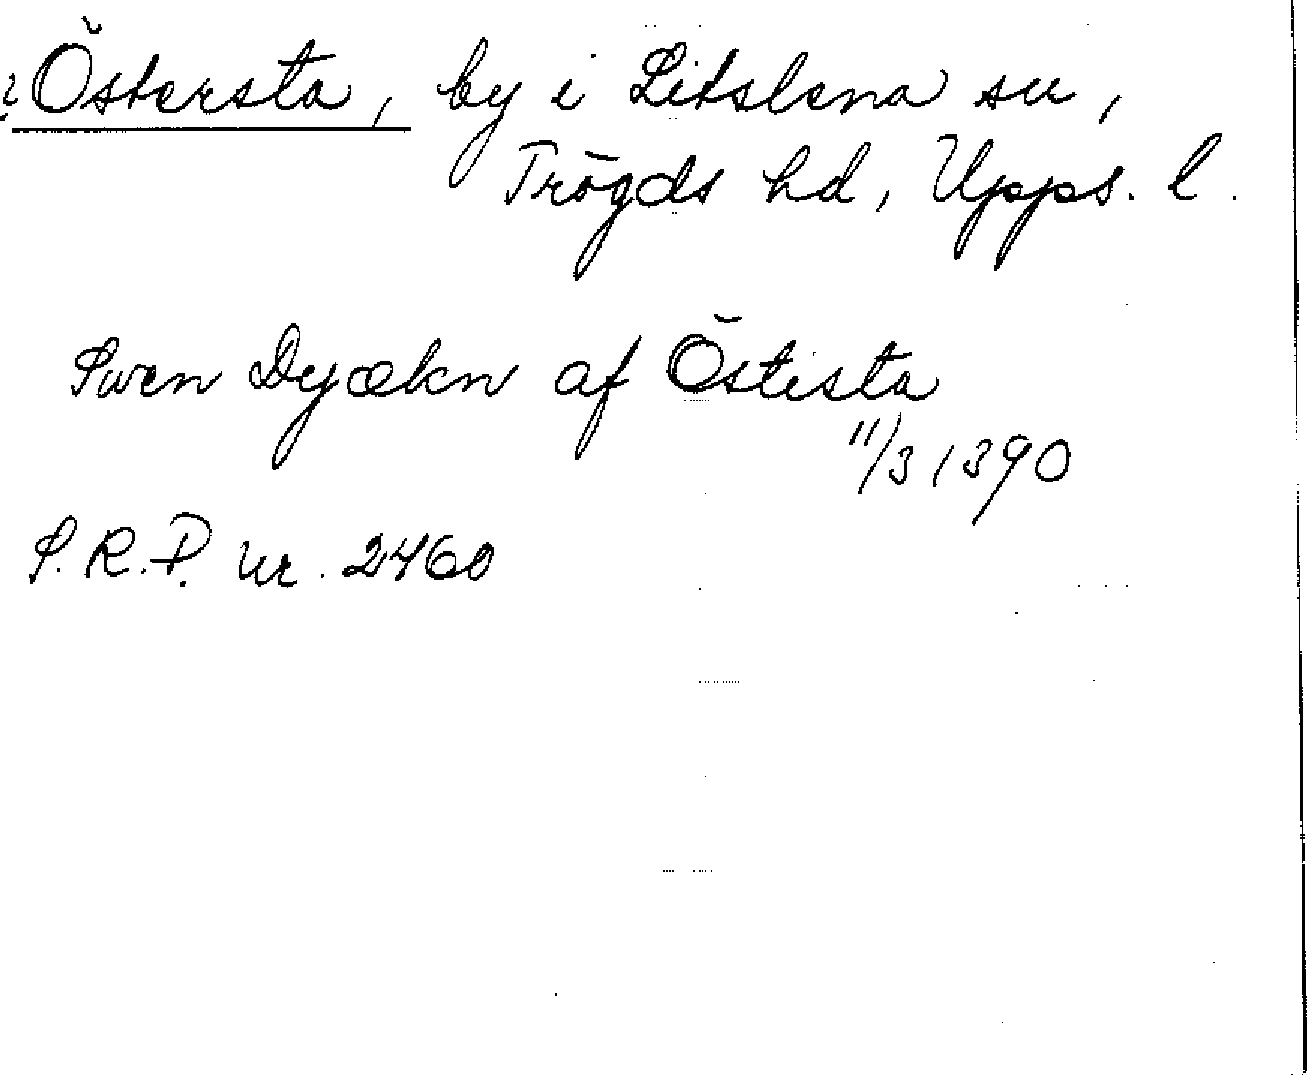 ? Östersta, by i Litslena sn,
Trögds hd, Upps. l.
Swen Dyækn af Östista
11/3 1390
S.R.P. nr. 2460